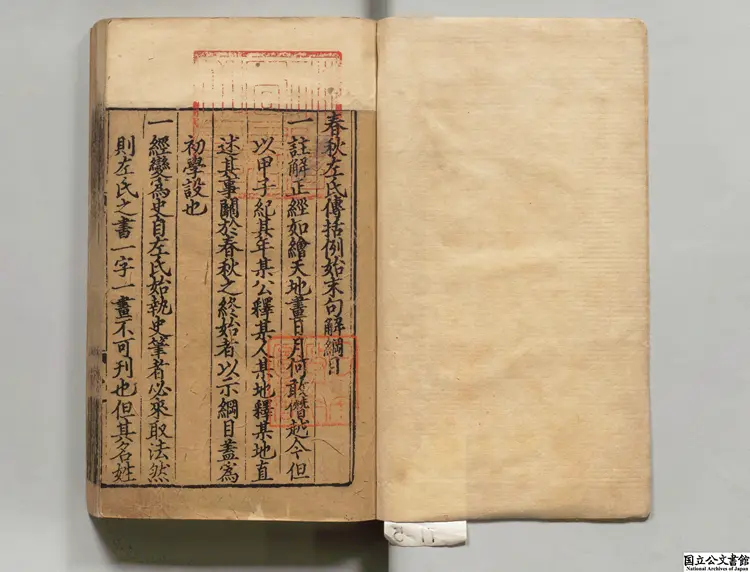 春秋左氏傳括例始末句解綱目
一註解正經如繪天地畫日月何敢僭越今但
以甲子紀其年某公釋某人某地釋某地直
述其事關於春秋之終始者以示綱目蓋爲
初學設也
一經變爲史自左氏始執史筆者必來取法然
則左氏之書一字一畫不可刊也但其名姓
国立公文書館
National Archives of Japan